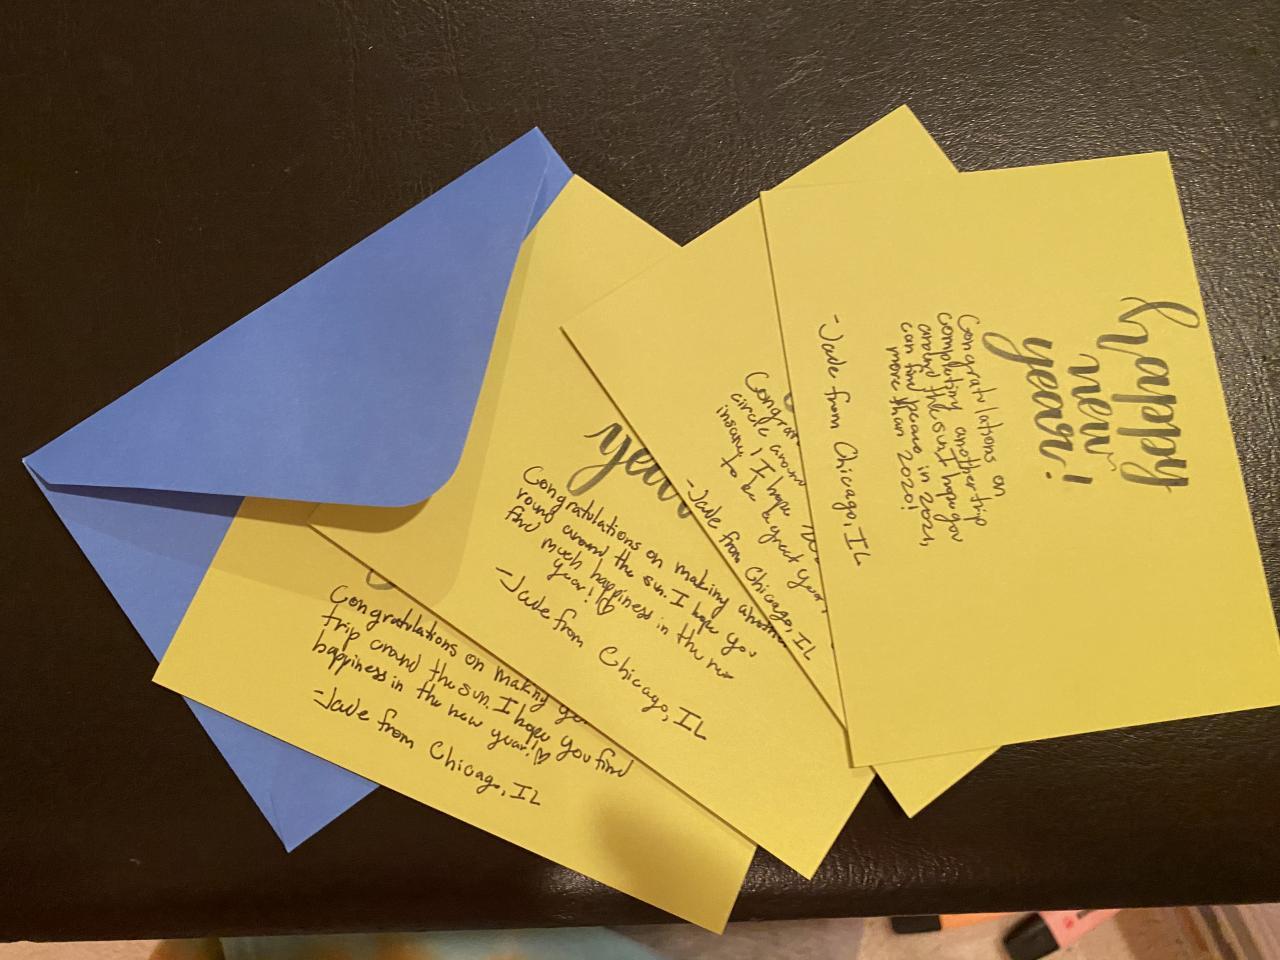 happy
new
year!
Congratulations on
completing another trip
around the sun. I hope you
can find peace in 2021,
more than 2020!
-Jade from Chicago, IL
Congra
circle aroun
insane, I hope
to be a great year,
-Jade from Chicago, IL
year
Congratulations on making anothe
round around the sun. I hope you
find much happiness in the new
year! ♡
-Jade from Chicago, IL
Congratulations on making
trip around the sun. I hope you find
happiness in the new year! ♡
-Jade from Chicago, IL